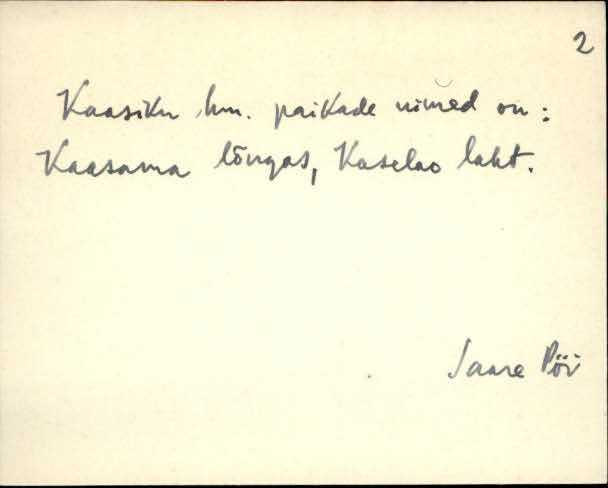 2
Kaasiku hm. paikade nimed on:
Kaasama lõngas, Kaselao laht.
Saare Pöi